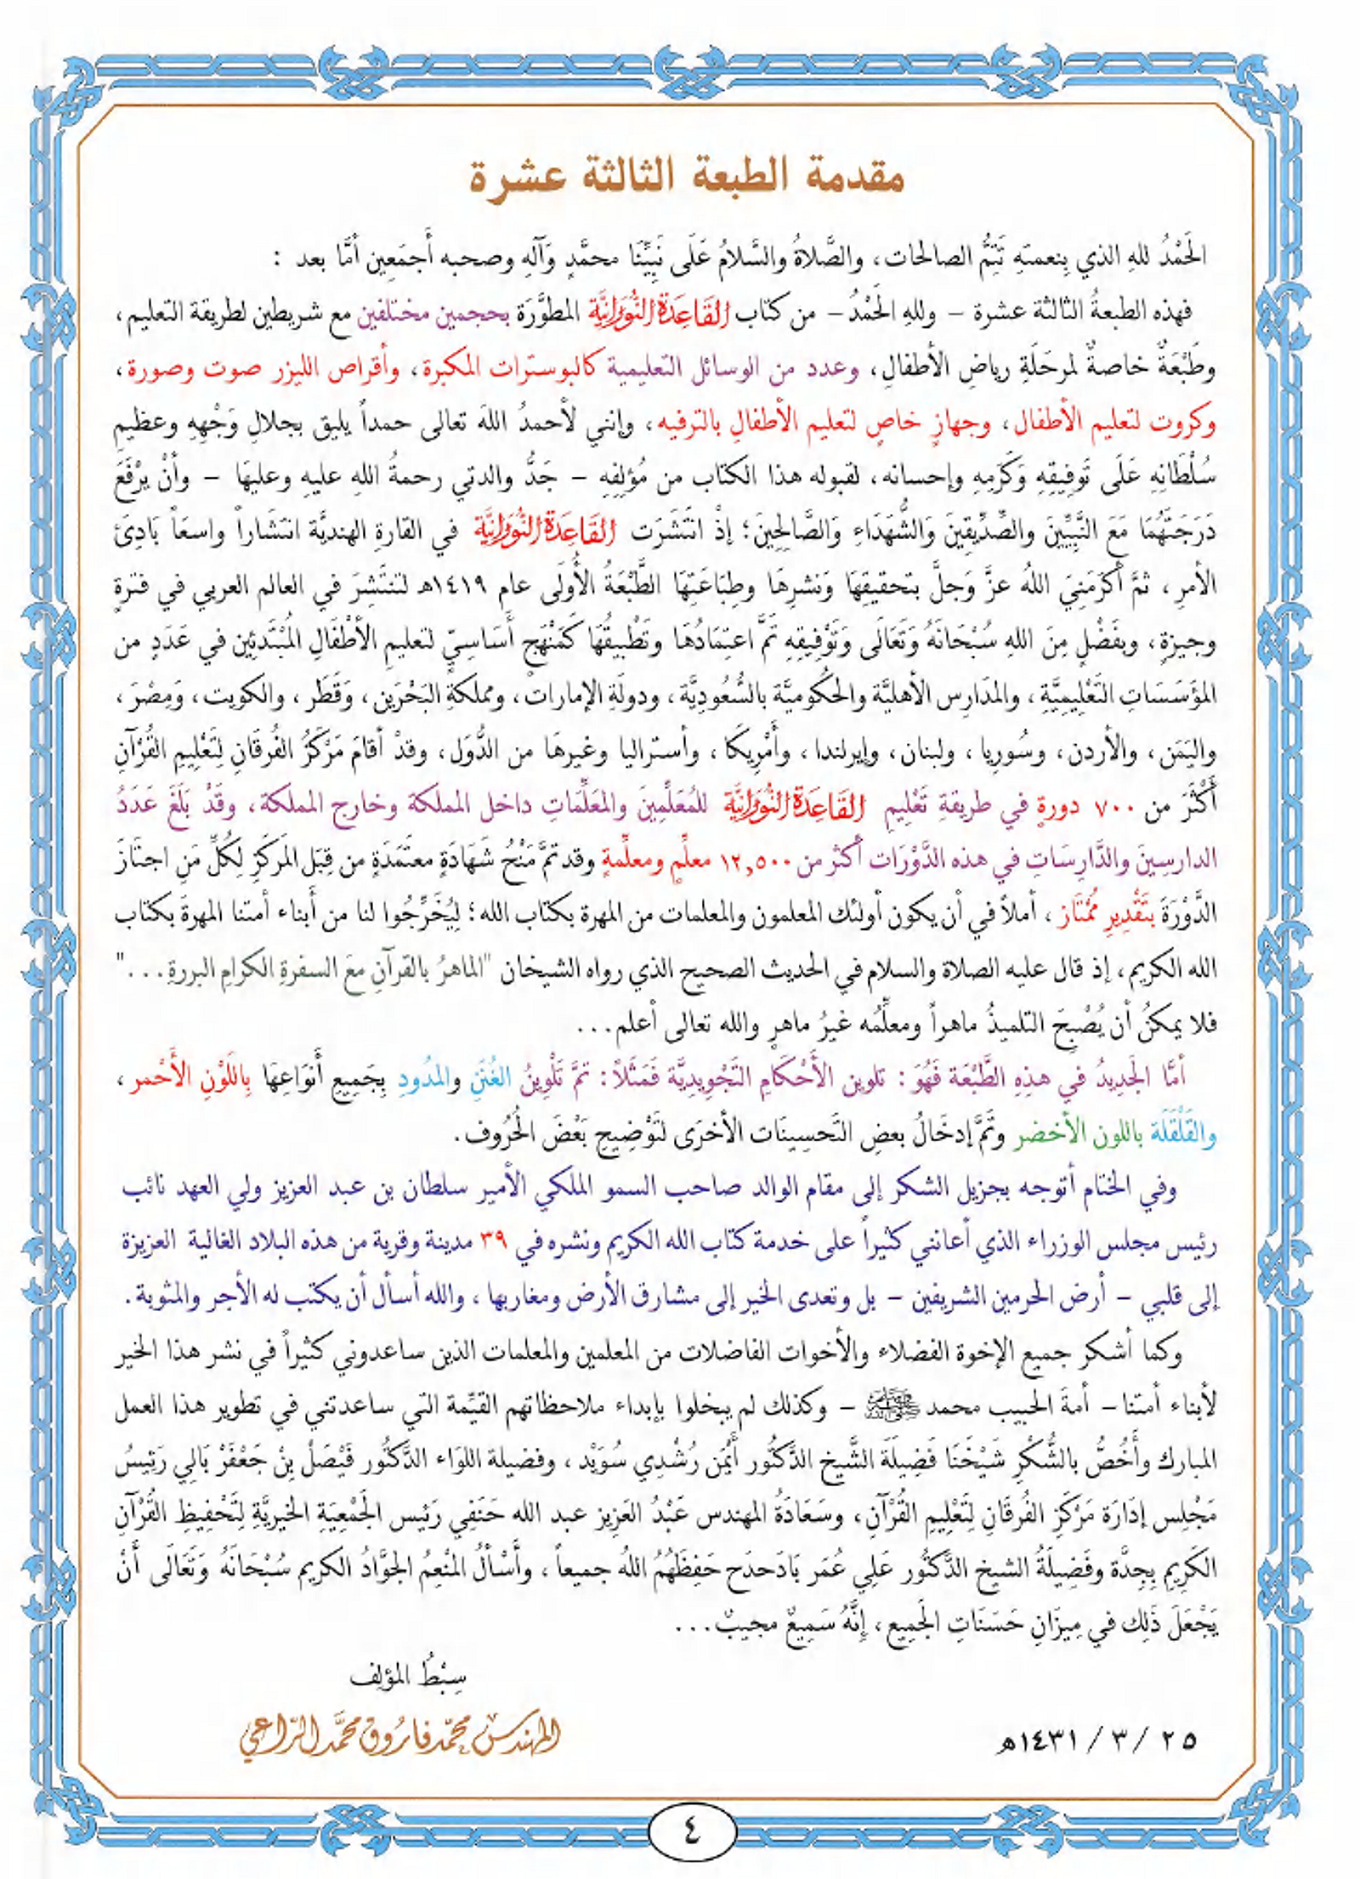 مقدمة الطبعة الثالثة عشرة
الحَمْدُ للهِ الذي بِنعمتِهِ تَتِمُّ الصالحات، والصَّلاةُ والسَّلامُ عَلَى نَبِيِّنَا محمَّدٍ وَآلهِ وصحبه أَجمَعِين أمَّا بعد :
فهذه الطبعةُ الثالثة عشرة – وللهِ الحَمْدُ – من كتاب القَاعَدَة النُّورَانِيَّة المطوَّرَة بحجمين مختلفين مع شريطين لطريقة التعليم،
وطَبْعَةٌ خاصةٌ لمرحَلَةِ رياضِ الأطفالِ، وعدد من الوسائل التعليمية كالبوسترات المكبرة، وأقراص الليزر صوت وصورة،
وكروت لتعليم الأطفال، وجهازٍ خاصٍ لتعليم الأطفالِ بالترفيه، وإنني لأحمدُ اللهَ تعالى حمداً يليق بجلالِ وَجْهِهِ وعظيمِ
سُلْطَانِهِ عَلَى تَوفِيقِهِ وَكَرَمِهِ وإحسانه، لقبوله هذا الكتاب من مُؤلِفِهِ – جَدُّ والدتي رحمةُ اللهِ عليهِ وعليهَا – وأنْ يرْفَعَ
دَرَجَتَهُمَا مَعَ النَّبِيِّينَ والصِّدِّيقِينَ وَالشُّهَدَاءِ وَالصَّالِحِينَ؛ إذْ انْتَشَرَت القَاعَدَة النُّورَانِيَّة في القارةِ الهنديَّة انتشَاراً واسعَاً بَادِئَ
الأمرِ، ثمَّ أكرَمَنِيَ اللهُ عزَّ وَجلَّ بتحقيقِهَا وَنشرِهَا وطِبَاعَتِهَا الطَّبْعَةُ الأُولَى عام ١٤١٩هـ لتنتَشِرَ في العالم العربي في فترةٍ
وجيزةٍ، وبفَضْلٍ مِنَ اللهِ سُبْحَانَهُ وَتَعَالَى وَتَوْفِيقِهِ تمَّ اعتِمَادُهَا وتَطْبِيقُهَا كَمَنْهَجٍ أسَاسِيّ لتعليمِ الأطْفَالِ المُبْتَدِئِين في عَدَدٍ من
المؤَسَسَاتِ التَعْلِيمِيَّةِ، والمدَارِس الأهليَّة والحكُوميَّة بالسُّعُوديَّة، ودولَةِ الإمارات، ومملكةِ البَحْرَين، وَقَطَر، والكويت، وَمِصْرَ،
واليَمَن، والأردن، وسُوريا، ولبنان، وإيرلندا، وأمْرِيكَا، وأسـتراليا وغيرهَا من الدُّوَل، وقدْ أقَامَ مَرْكَزُ الفُرقَانِ لِتَعْلِيمِ القُرْآنِ
أَكْثَرَ من ٧٠٠ دورةٍ في طريقةِ تَعْلِيمِ القَاعَدَة النُّورَانِيَّة للمُعَلِّمِينَ والمعَلِّمَاتِ داخل المملكة وخارج المملكة، وقَدْ بَلَغَ عَدَدُ
الدارِسِينَ والدَّارِسَاتِ في هذه الدَّوْرَات أكثر من ١٢,٥٠٠ معلِّمٍ ومعلِّمةٍ وقد تمَّ مَنْحُ شَهَادَةٍ معتَمَدَةٍ من قِبَل المَركَزِ لِكُلِّ مَنِ اجتَازَ
الدَّوْرَةَ بتَقْدِيرِ مُمْتَاز، أملاً في أن يكون أولئك المعلمون والمعلمات من المهرة بكتاب الله؛ لِيُخَرِّجُوا لنا من أَبناء أمتنا المهرة بكتاب
الله الكريم، إذ قال عليه الصلاة والسلام في الحديث الصحيح الذي رواه الشيخان "الماهرُ بالقرآنِ معَ السفرةِ الكرامِ البررةِ..."
فلا يمكنُ أن يُصْبِحَ التلميذُ ماهراً ومعلِّمُه غيرُ ماهرٍ والله تعالى أعلم...
أمَّا الجَدِيدُ في هذِهِ الطَّبْعَة فَهُوَ: تلوين الأَحْكَامِ التَجْوِيدِيَّة فَمَثَلاً: تمَّ تَلْوِينُ الغُنَنِ والمدُودِ بِجَمِيعِ أَنْوَاعِهَا بِاللَوْنِ الأَحْمر،
والقَلْقَلَة باللون الأخضر وتَمَّ إدخَالُ بعضِ التَحسِينَات الأخرَى لتَوْضِيحِ بَعْضَ الحُرُوف.
وفي الختام أتوجه بجزيل الشكر إلى مقام الوالد صاحب السمو الملكي الأمير سلطان بن عبد العزيز ولي العهد نائب
رئيس مجلس الوزراء الذي أعانني كثيراً على خدمة كتاب الله الكريم ونشره في ٣٩ مدينة وقرية من هذه البلاد الغالية العزيزة
إلى قلبي – أرض الحرمين الشريفين – بل وتعدى الخير إلى مشارق الأرض ومغاربها، والله أسأل أن يكتب له الأجر والمثوبة.
وكما أشكر جميع الإخوة الفضلاء والأخوات الفاضلات من المعلمين والمعلمات الذين ساعدوني كثيراً في نشر هذا الخير
لأبناء أمتنا – أمةَ الحبيب محمد ﷺ – وكذلك لم يبخلوا بإبداء ملاحظاتهم القيِّمة التي ساعدتني في تطوير هذا العمل
المبارك وأَخُصُّ بالشُّكْرِ شَيْخَنَا فَضِيلَةَ الشَّيخ الدَّكتُور أَيْمَن رُشْدِي سُوَيْد، وفضيلة اللوَاء الدَّكتُور فَيْصَلْ بِنْ جَعْفَرْ بَالِي رَئِيسُ
مَجْلِس إدَارَة مَرْكَز الفُرقَانِ لِتَعْلِيمِ القُرْآنِ، وسَعَادَةُ المهندس عَبْدُ العَزِيز عبد الله حَنَفِي رَئيس الجَمْعِيَةِ الخيريَّةِ لِتَحْفِيظِ القُرْآنِ
الكَرِيم بِجِدَّة وفَضِيلَةُ الشيخ الدَّكتُور عَلِي عُمَر بَادَحدَح حَفِظَهُمُ اللهُ جميعاً، وأَسْأَلُ المنْعِمُ الجَوَّادُ الكريم سُبْحَانَهُ وَتَعَالَى أَنْ
يَجْعَلَ ذَلِكَ في مِيزَانِ حَسَنَاتِ الجَمِيعِ، إِنَّهُ سَمِيعٌ مجيبٌ...
سِبْطُ المؤلف
المهندس محمّد فاروق محمّد الرّاعي
٢٥ / ٣ / ١٤٣١هـ
٤